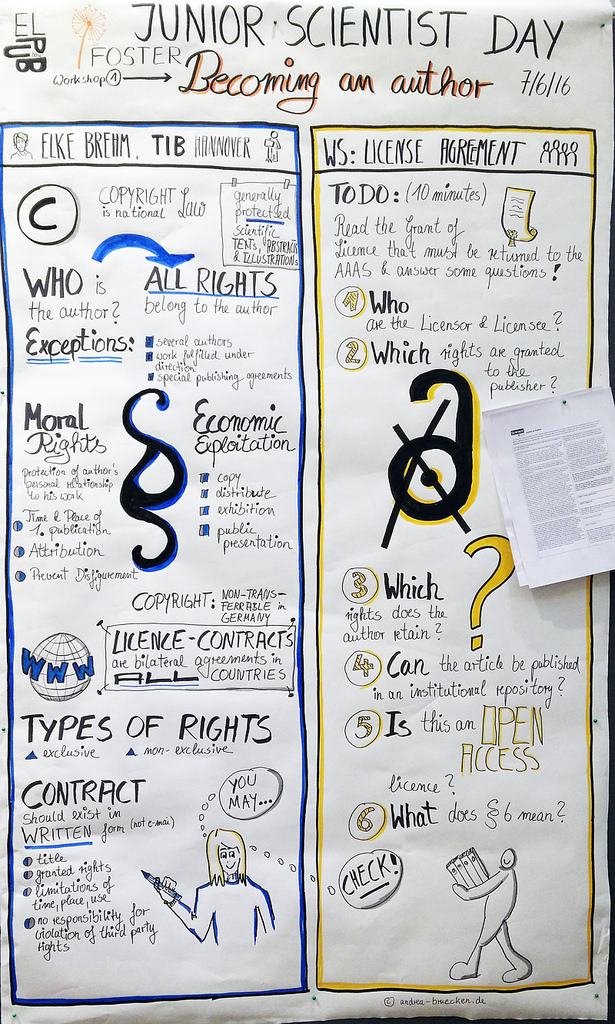 ELPUB
JUNIOR · SCIENTIST DAY
FOSTER
Workshop 1
Becoming an author
7/6/16
ELKE BREHM, TIB HANNOVER
C
COPYRIGHT
is national Law
generally
protected
scientific
TEXTS, ABSTRACTS
& ILLUSTRATIONS
WHO is
the author?
ALL RIGHTS
belong to the author
Exceptions:
several authors
work fulfilled under
direction
special publishing agreements
Moral
Rights
protection of author's
personal relationship
to his work
Time & Place of
1. publication
Attribution
Prevent Disfigurement
§
Economic
Exploitation
copy
distribute
exhibition
public
presentation
COPYRIGHT: NON-TRANS-
FERRABLE in
GERMANY
WWW
LICENCE-CONTRACTS
are bilateral agreements in
ALL COUNTRIES
TYPES OF RIGHTS
exclusive
non-exclusive
CONTRACT
should exist in
WRITTEN form (not e-mail)
title
granted rights
limitations of
time, place, use
no responsibility for
violation of third party
rights
YOU
MAY...
WS: LICENSE AGREEMENT
TO DO: (10 minutes)
Read the Grant of
Licence that must be returned to the
AAAS & answer some questions!
1 Who
are the Licensor & Licensee?
2 Which rights are granted
to the
publisher?
?
3 Which
rights does the
author retain?
4 Can the article be published
in an institutional repository?
5 Is this an OPEN
ACCESS
licence?
6 What does § 6 mean?
CHECK!
© andrea-bruecken.de